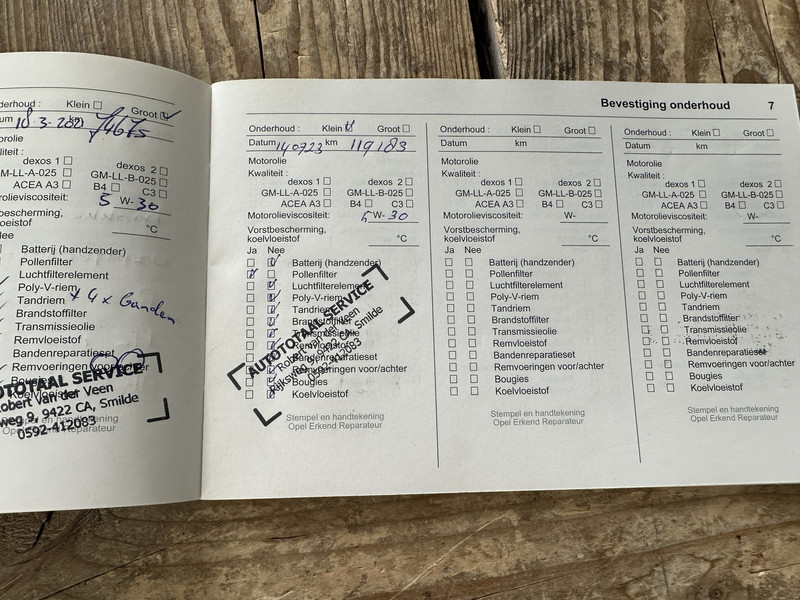 derhoud : Klein Groot
18-3-202
orolie
liteit :
dexos 1 dexos 2
M-LL-A-025 GM-LL-B-025
ACEA A3 B4 C3
orolieviscositeit: 5 W- 30
bescherming,
oeistof °C
ee
Batterij (handzender)
Pollenfilter
Luchtfilterelement
Poly-V-riem
Tandriem + 4 x banden
Brandstoffilter
Transmissieolie
Remvloeistof
Bandenreparatieset
Remvoeringen voor/achter
Bougies
OTOTAAL SERVICE
obert van der Veen
weg 9, 9422 CA, Smilde
0592-412083
pel en handtekening
Opel Erkend Reparateur
Bevestiging onderhoud 7
Onderhoud : Klein Groot
Datum 140723 km 119183
Motorolie
Kwaliteit :
dexos 1 dexos 2
GM-LL-A-025 GM-LL-B-025
ACEA A3 B4 C3
Motorolieviscositeit: 5 W- 30
Vorstbescherming,
koelvloeistof °C
Ja Nee
Batterij (handzender)
Pollenfilter
Luchtfilterelement
Poly-V-riem
Tandriem
Brandstoffilter
Transmissieolie
Remvloeistof
Bandenreparatieset
Remvoeringen voor/achter
Bougies
Koelvloeistof
AUTOTOTAAL SERVICE
Robert van der Veen
Rijksweg 9, 9422 CA, Smilde
0592-412083
Stempel en handtekening
Opel Erkend Reparateur
Onderhoud : Klein Groot
Datum km
Motorolie
Kwaliteit :
dexos 1 dexos 2
GM-LL-A-025 GM-LL-B-025
ACEA A3 B4 C3
Motorolieviscositeit: W-
Vorstbescherming,
koelvloeistof °C
Ja Nee
Batterij (handzender)
Pollenfilter
Luchtfilterelement
Poly-V-riem
Tandriem
Brandstoffilter
Transmissieolie
Remvloeistof
Bandenreparatieset
Remvoeringen voor/achter
Bougies
Koelvloeistof
Stempel en handtekening
Opel Erkend Reparateur
Onderhoud : Klein Groot
Datum km
Motorolie
Kwaliteit :
dexos 1 dexos 2
GM-LL-A-025 GM-LL-B-025
ACEA A3 B4 C3
Motorolieviscositeit: W-
Vorstbescherming,
koelvloeistof °C
Ja Nee
Batterij (handzender)
Pollenfilter
Luchtfilterelement
Poly-V-riem
Tandriem
Brandstoffilter
Transmissieolie
Remvloeistof
Bandenreparatieset
Remvoeringen voor/achter
Bougies
Koelvloeistof
Stempel en handtekening
Opel Erkend Reparateur